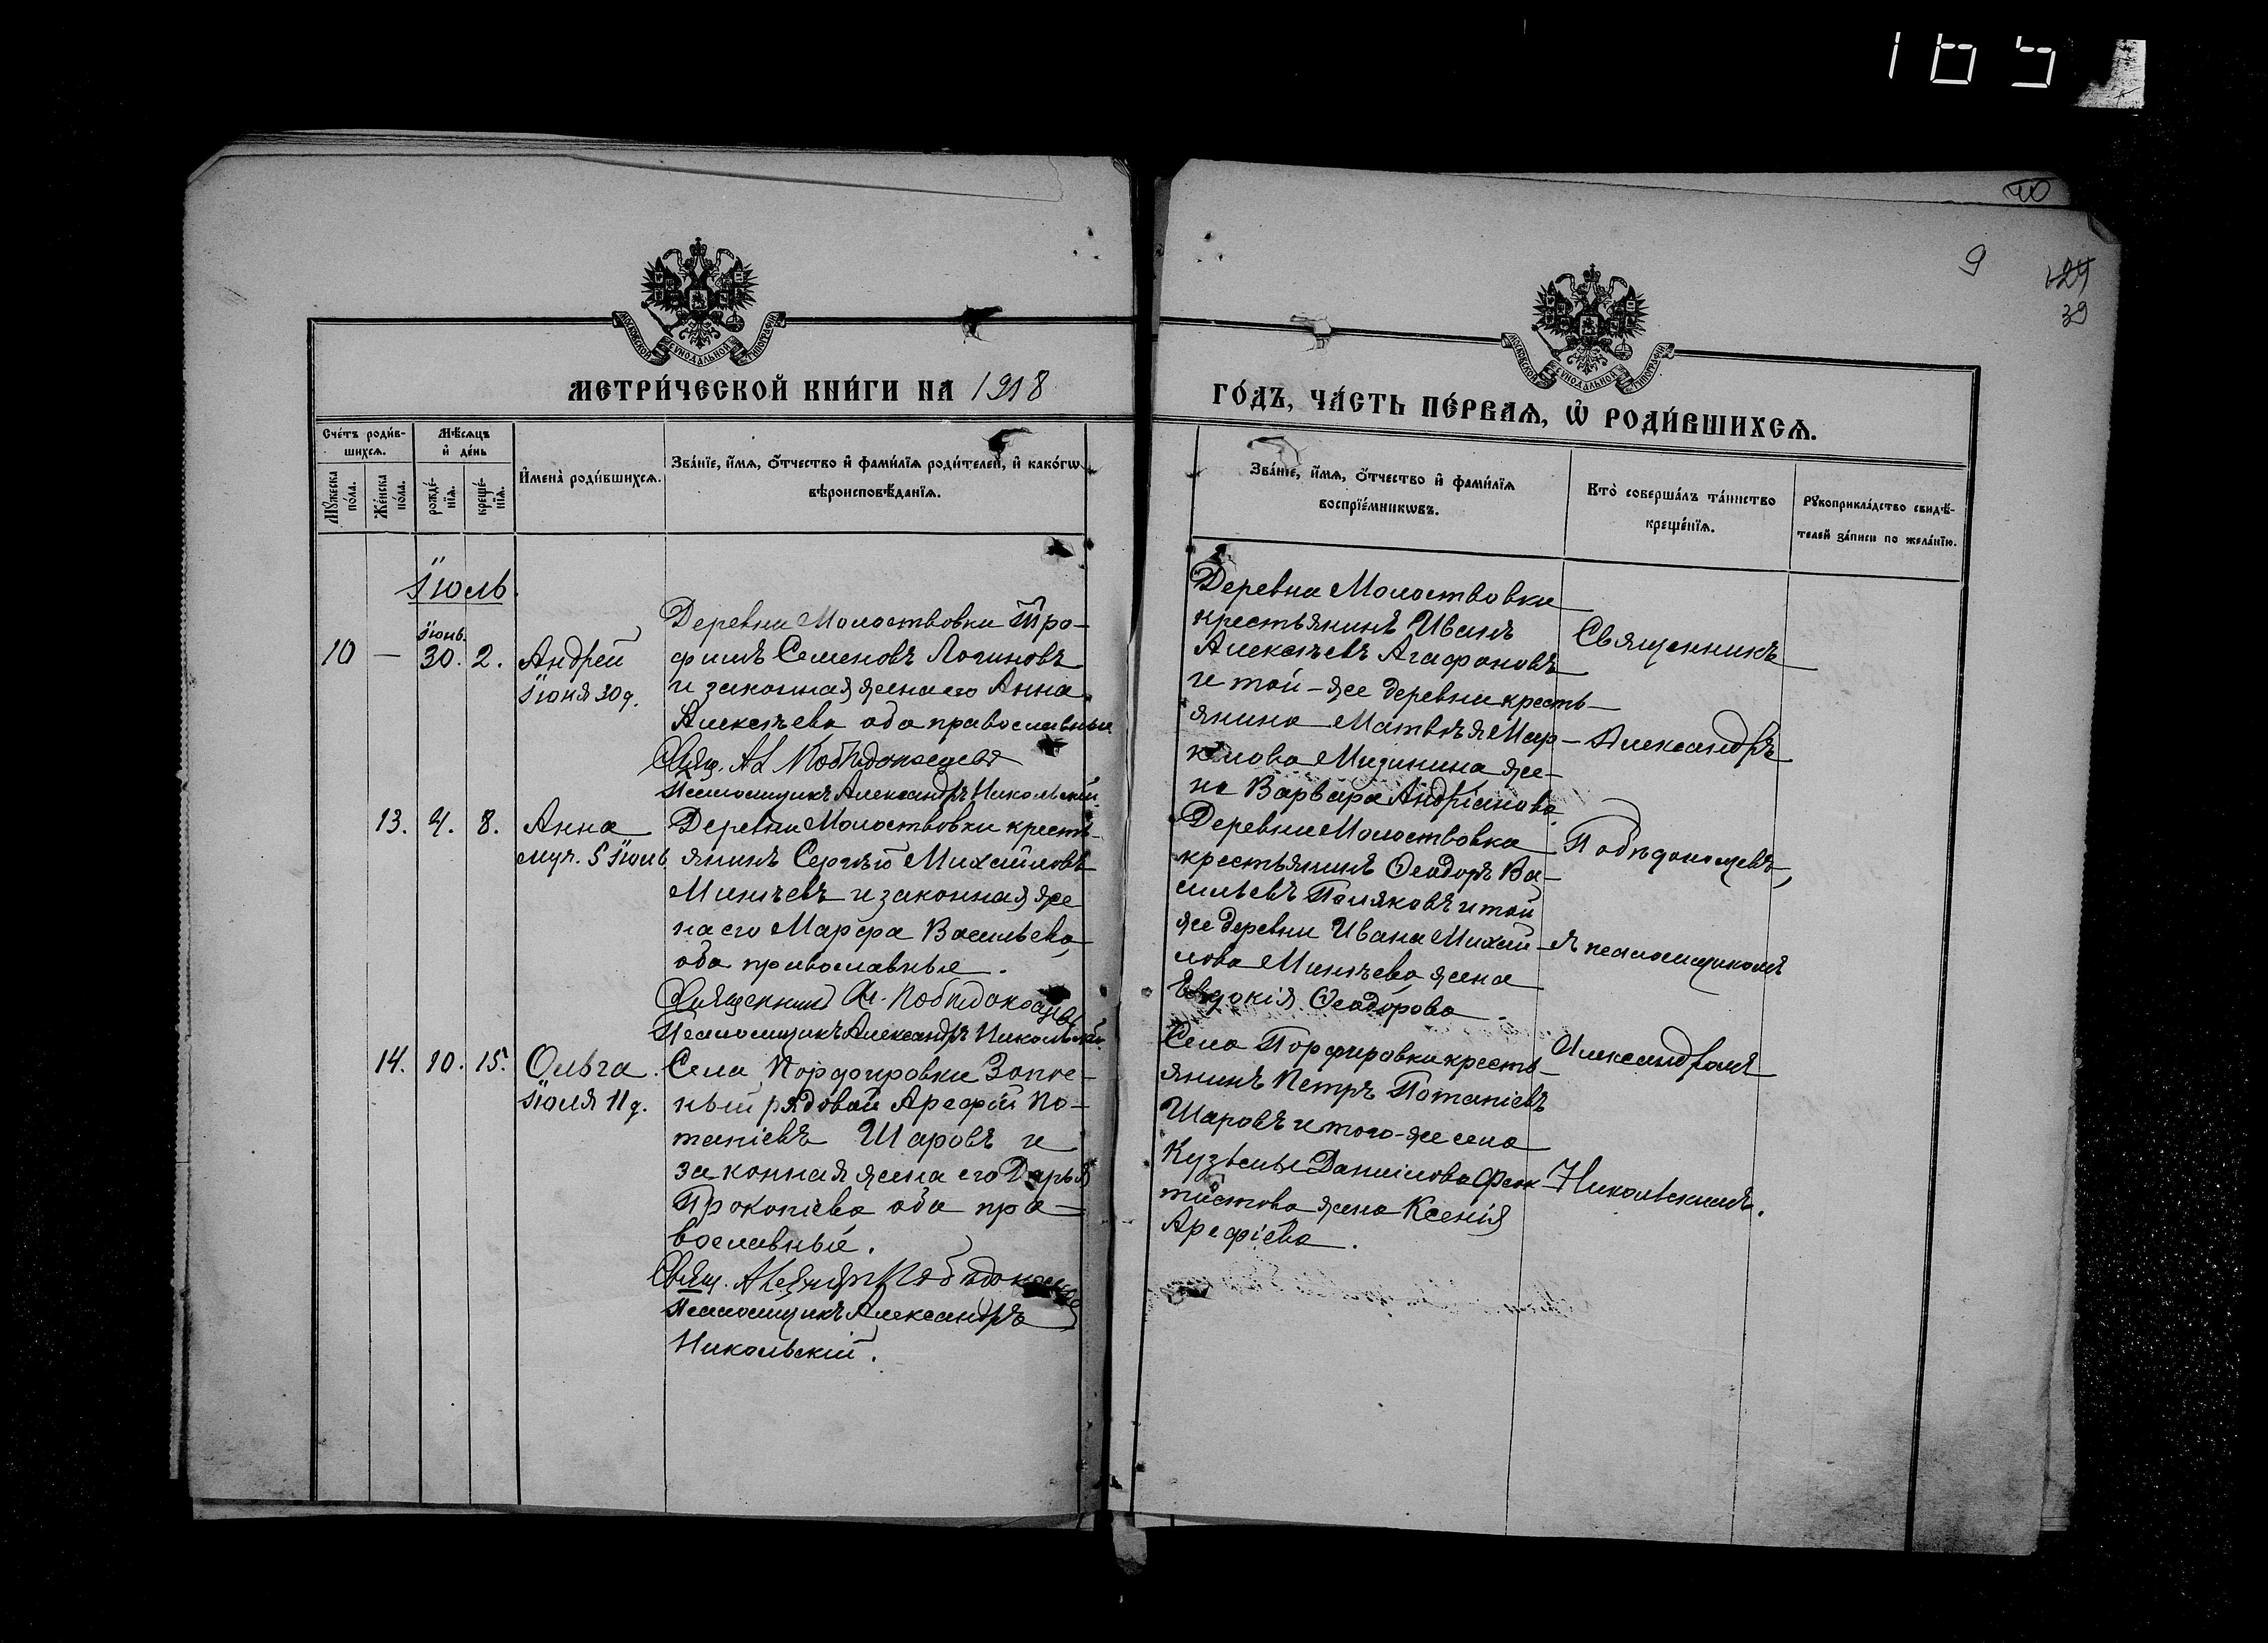 1651
40
9
129
39
МОСКОВСКОЙ СѴНОДАЛЬНОЙ ТИПОГРАФІИ
МОСКОВСКОЙ СѴНОДАЛЬНОЙ ТИПОГРАФІИ
МЕТРИ́ЧЕСКОЙ КНИ́ГИ НА 1918
ГО́ДЪ, ЧА́СТЬ ПЕ́РВАѦ, Ѡ҆ РОДИ́ВШИХСѦ.
Сче́тъ роди́в-
шихсѧ.
Мѣ́сѧцъ
и҆ де́нь
Мꙋ́жеска
по́ла.
Же́нска
по́ла.
рожде́-
нїѧ.
креще́-
нїѧ.
И҆мена̀ роди́вшихсѧ.
Зва́нїе, и҆́мѧ, ѻ҆́тчество и҆ фами́лїѧ роди́телей, и҆ како́гѡ
вѣроисповѣ́данїѧ.
Зва́нїе, и҆́мѧ, ѻ҆́тчество и҆ фами́лїѧ
воспрїе́мникѡвъ.
Кто̀ соверша́лъ та́инство
креще́нїѧ.
Рꙋкоприкла́дство свидѣ́-
телей за́писи по жела́нїю.
Іюль.
10 — Іюнь 30. 2. Андрей
Іюня 30 д.
Деревни Молоствовки Тро-
фимъ Семеновъ Логиновъ
и законная жена его Анна
Алексѣева оба православные
Свящ. Ал. Побѣдоносцевъ
Псаломщикъ Александръ Никольскій.
Деревни Молоствовки
крестьянинъ Иванъ
Алексѣевъ Агафоновъ
и той-же деревни кресть-
янина Матвѣя Мар-
килова Мизинина же-
на Варвара Андріанова.
13. 4. 8. Анна
муч. 5 Іюль
Деревни Молоствовки кресть-
янинъ Сергѣй Михайловъ
Минѣевъ и законная же
на его Марфа Васильева,
оба православные.
Священникъ Ал. Побѣдоносцевъ
Псаломщикъ Александръ Никольскій.
Деревни Молоствовки
крестьянинъ Ѳеодоръ Ва-
сильевъ Поляковъ и той
же деревни Ивана Михай-
лова Минѣева жена
Евдокія Ѳеодорова.
14. 10. 15. Ольга.
Іюля 11 д.
Села Порфировки Запас-
ный рядовой Арефій По-
тапіевъ Шаровъ и
законная жена его Дарья
Прокопіева оба пра-
вославные.
Свящ. Александръ Побѣдоносцевъ
Псаломщикъ Александръ
Никольскій.
Села Порфировки кресть-
янинъ Петръ Потапіевъ
Шаровъ и того-же села
Кузьмы Даниілова Феок-
тистова жена Ксенія
Арефіева.
Священникъ
Александръ
Побѣдоносцевъ,
съ псаломщикомъ
Александромъ
Никольскимъ.